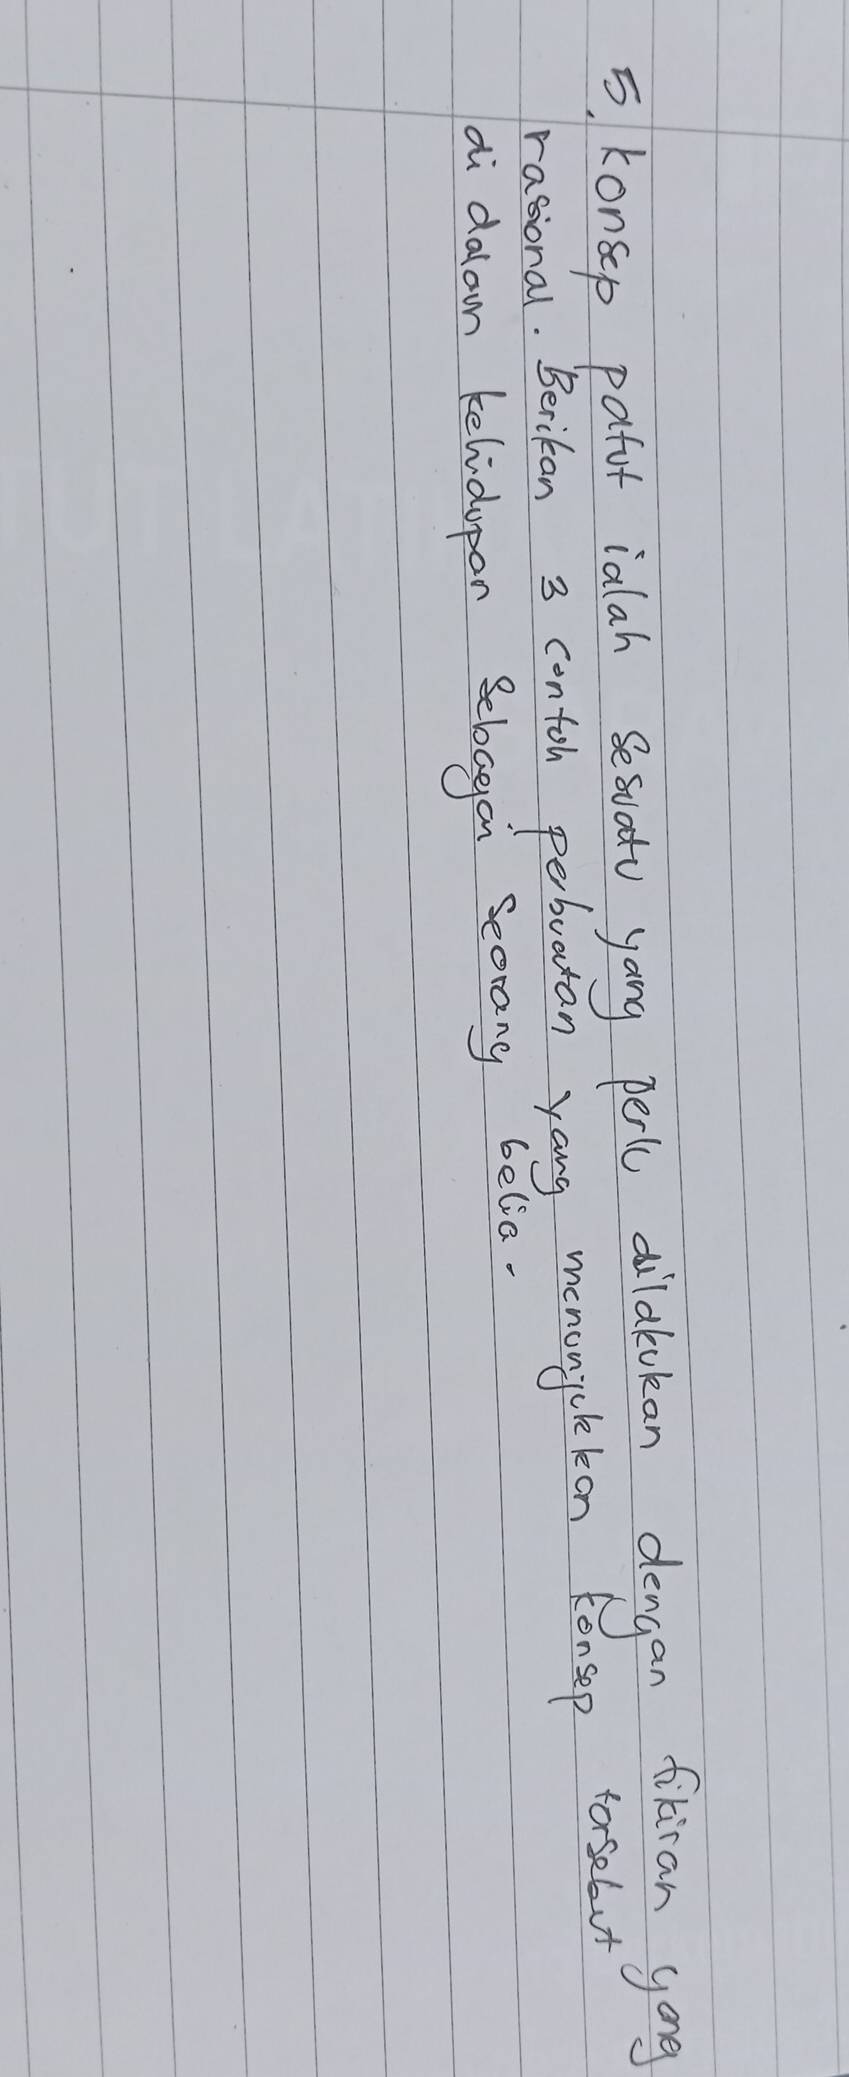 5. Konsep patut ialah sesuatu yang perlu dilakukan dengan fikiran yang
rasional. Berikan 3 contoh perbuatan yang menunjukkan konsep tersebut
di dalam kehidupan sebagai seorang belia.